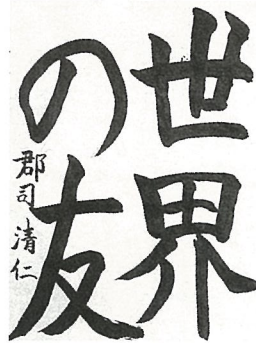 世界
の友
郡司清仁